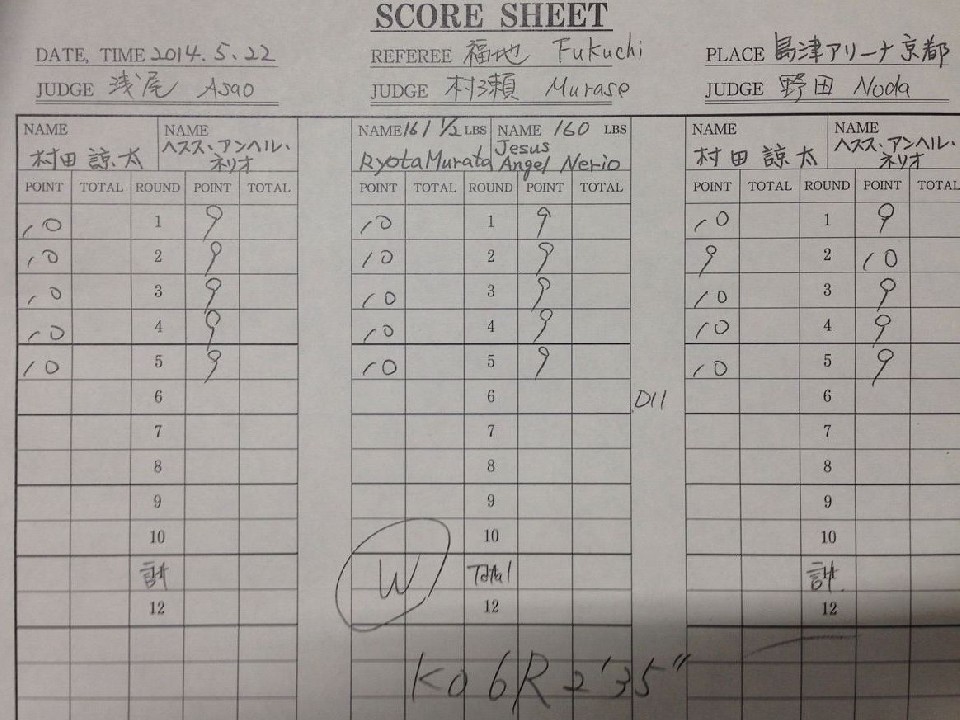 SCORE SHEET
DATE, TIME 2014.5.22 REFEREE 福地 Fukuchi PLACE 島津アリーナ京都
JUDGE 浅尾 Asao JUDGE 村瀬 Murase JUDGE 野田 Noda
NAME NAME NAME 161 1/2 LBS NAME 160 LBS NAME NAME
村田 諒太 ヘスス・アンヘル・ネリオ Ryota Murata Jesus Angel Nerio 村田 諒太 ヘスス・アンヘル・ネリオ
POINT TOTAL ROUND POINT TOTAL POINT TOTAL ROUND POINT TOTAL POINT TOTAL ROUND POINT TOTAL
10 1 9 10 1 9 10 1 9
10 2 9 10 2 9 9 2 10
10 3 9 10 3 9 10 3 9
10 4 9 10 4 9 10 4 9
10 5 9 10 5 9 10 5 9
6 6 6
7 7 7
8 8 8
9 9 9
10 10 10
計 W Total 計
12 12 12
KO 6R 2'35"